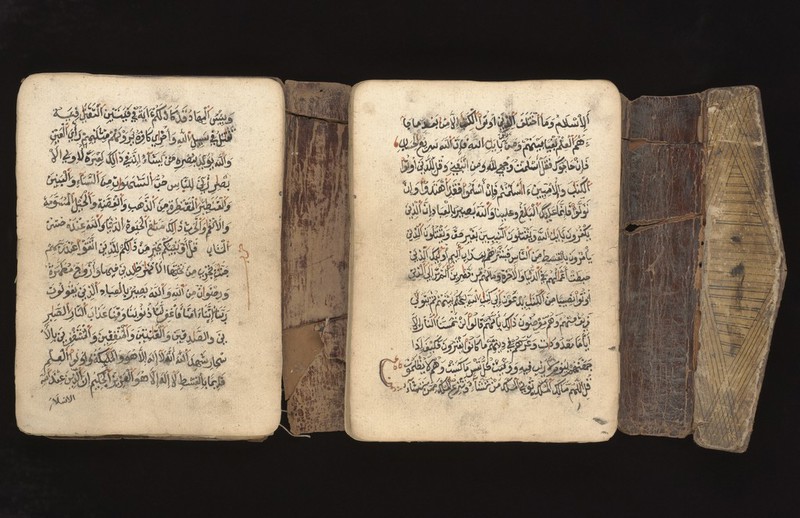 وبيس المهاد قد كان لكم ءاية في فيتين التقتا فية
تقتل في سبيل الله وأخرى كافرة ترونهم مثليهم رأي العين
والله يويد بنصره من يشاء إن في ذلك لعبرة لأولي الا
بصر زين للناس حب الشهوات من النساء والبنين
والقنطير المقنطرة من الذهب والفضة والخيل المسومة
والأنعم والحرث ذلك متع الحيوة الدنيا والله عنده حسن
المئاب قل أونبيكم بخير من ذلكم للذين اتقوا عند ربهم
جنت تجري من تحتها الانهر خلدين فيها وأزوج مطهرة
ورضوان من الله والله بصير بالعباد الذين يقولون
ربنا إننا ءامنا فاغفر لنا ذنوبنا وقنا عذاب النار الصبر
ين والصدقين والقنتين والمنفقين والمستغفرين بالا
سحار شهد الله أنه لا إله إلا هو والمليكة وأولوا العلم
قايما بالقسط لا إله إلا هو العزيز الحكيم إن الدين عند الله
الاسلم
الإسلام وما اختلف الذين أوتوا الكتب إلا من بعد ما جا
ءهم العلم بغيا بينهم ومن يكفر بايت الله فإن الله سريع الحساب
فإن حاجوك فقل أسلمت وجهي لله ومن اتبعن وقل للذين أوتوا
الكتب والأميين ءاسلمتم فإن أسلموا فقد اهتدوا وإن
تولوا فإنما عليك البلغ والله بصير بالعباد إن الذين
يكفرون بايت الله ويقتلون النبيين بغير حق ويقتلون الذين
يأمرون بالقسط من الناس فبشرهم بعذاب أليم أوليك الذين
حبطت أعملهم في الدنيا والآخرة وما لهم من نصرين ألم تر إلى الذين
أوتوا نصيبا من الكتب يدعون إلى كتب الله ليحكم بينهم ثم يتولى
فريق منهم وهم معرضون ذلك بأنهم قالوا لن تمسنا النار إلا
أياما معدودت وغرهم في دينهم ما كانوا يفترون فكيف إذا
جمعنهم ليوم لا ريب فيه ووفيت كل نفس ما كسبت وهم لا يظلمون
قل اللهم ملك الملك توتي الملك من تشاء وتنزع الملك ممن تشاء